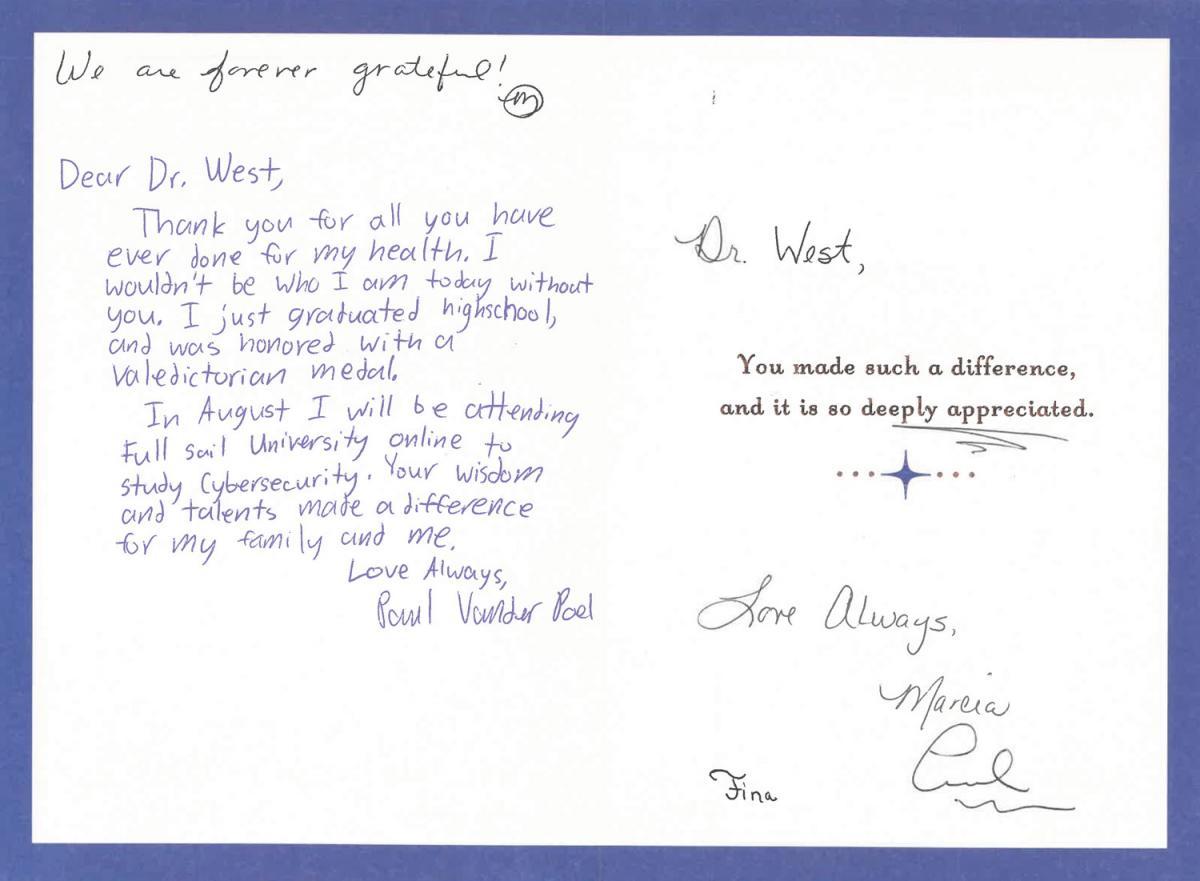 We are forever grateful!
m
Dear Dr. West,
Thank you for all you have
ever done for my health. I
wouldn't be who I am today without
you. I just graduated highschool,
and was honored with a
Valedictorian medal.
In August I will be attending
Full sail University online to
study Cybersecurity. Your wisdom
and talents made a difference
for my family and me.
Love Always,
Paul Vander Poel
Dr. West,
You made such a difference,
and it is so deeply appreciated.
Love Always,
Marcia
Paul
Fina